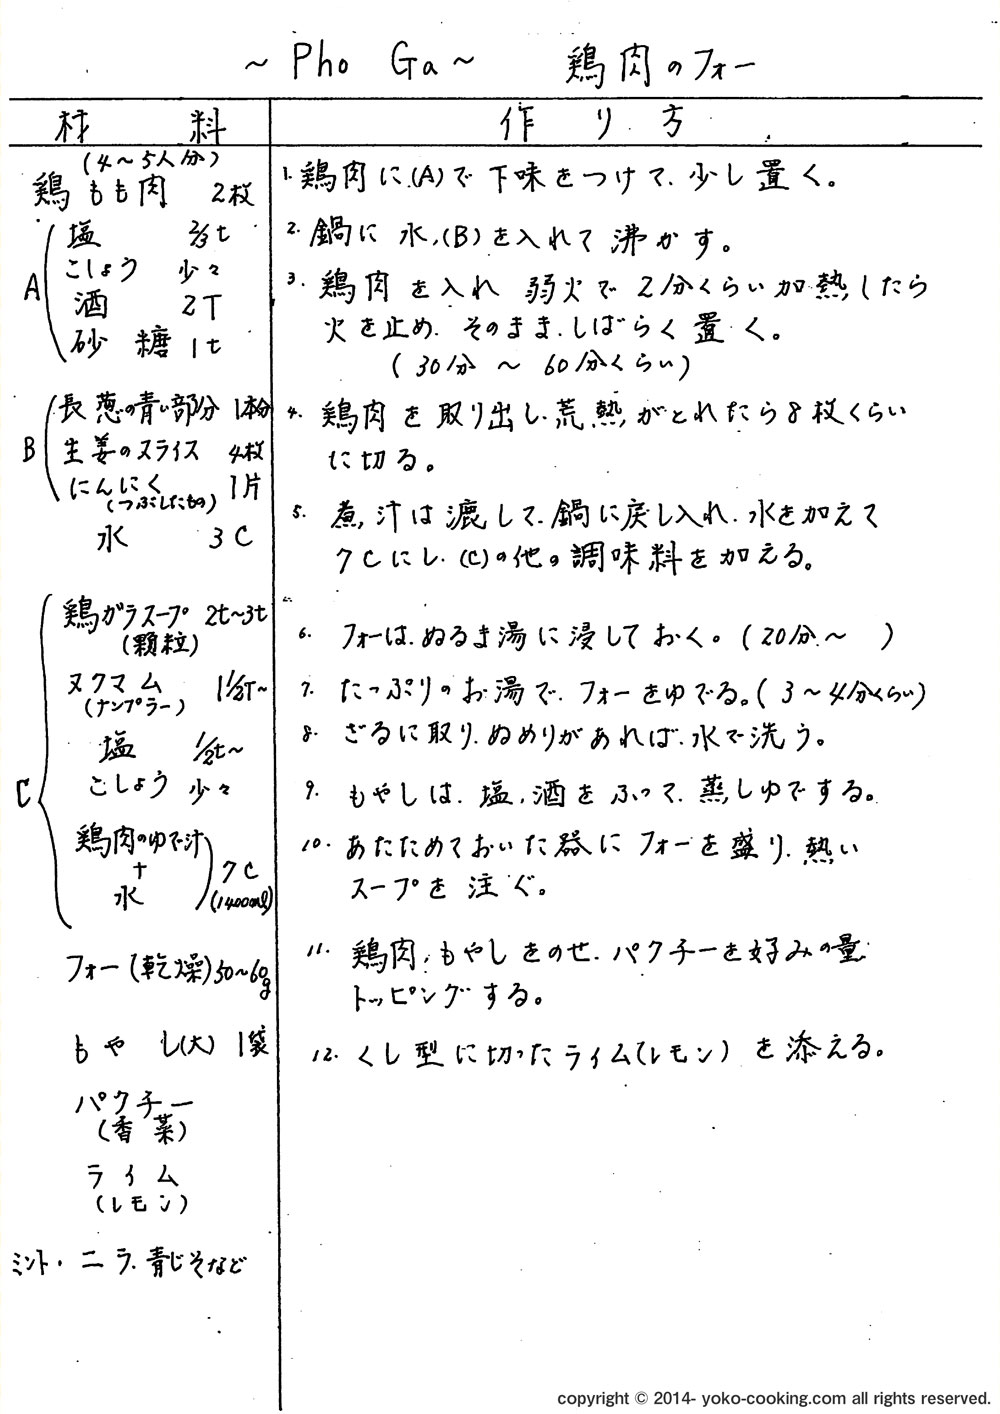 ~ Pho Ga ~ 鶏肉のフォー
材料
(4~5人分)
鶏もも肉 2枚
A
塩 2/3t
こしょう 少々
酒 2T
砂糖 1t
B
長葱の青い部分 1本分
生姜のスライス 4枚
にんにく 1片
(つぶしたもの)
水 3C
C
鶏ガラスープ 2t~3t
(顆粒)
ヌクマム 1 1/2T~
(ナンプラー)
塩 1/2t~
こしょう 少々
鶏肉のゆで汁
+
水
7C
(1400ml)
フォー(乾燥)50~60g
もやし(大) 1袋
パクチー
(香菜)
ライム
(レモン)
ミント・ニラ.青じそなど
作り方
1. 鶏肉に(A)で下味をつけて、少し置く。
2. 鍋に水、(B)を入れて沸かす。
3. 鶏肉を入れ 弱火で2分くらい加熱したら
火を止め、そのまま、しばらく置く。
(30分 ~ 60分くらい)
4. 鶏肉を取り出し、荒熱がとれたら8枚くらい
に切る。
5. 煮汁は漉して、鍋に戻し入れ、水を加えて
7Cにし、(C)の他の調味料を加える。
6. フォーは、ぬるま湯に浸しておく。(20分~ )
7. たっぷりのお湯で、フォーをゆでる。(3~4分くらい)
8. ざるに取り、ぬめりがあれば、水で洗う。
9. もやしは、塩、酒をふって、蒸しゆでする。
10. あたためておいた器にフォーを盛り、熱い
スープを注ぐ。
11. 鶏肉、もやしをのせ、パクチーを好みの量
トッピングする。
12. くし型に切ったライム(レモン)を添える。
copyright © 2014- yoko-cooking.com all rights reserved.